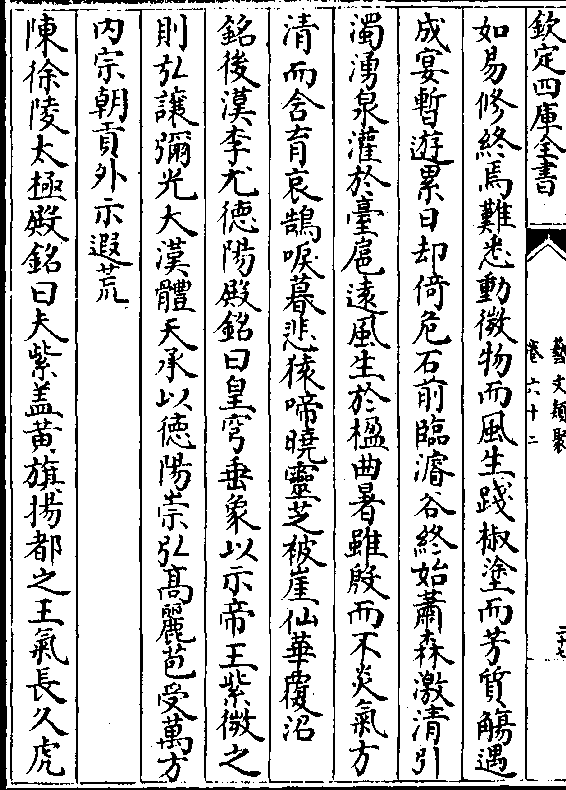 欽定四庫全書
藝文類聚
卷六十二
如易修終焉難悉動微物而風生踐椒塗而芳質觴遇
成宴暫遊累日却倚危石前臨濬谷終始蕭森激清引
濁湧泉灌於臺扈遠風生於楹曲暑雖殷而不炎氣方
清而含育哀鵠唳暮悲猿啼曉靈芝被崖仙華覆沼
銘後漢李尤德陽殿銘曰皇穹垂象以示帝王紫微之
則弘讓彌光大漢體天承以德陽崇弘高麗苞受萬方
内宗朝貢外示遐荒
陳徐陵太極殿銘曰夫紫盖黃旗揚都之王氣長久虎